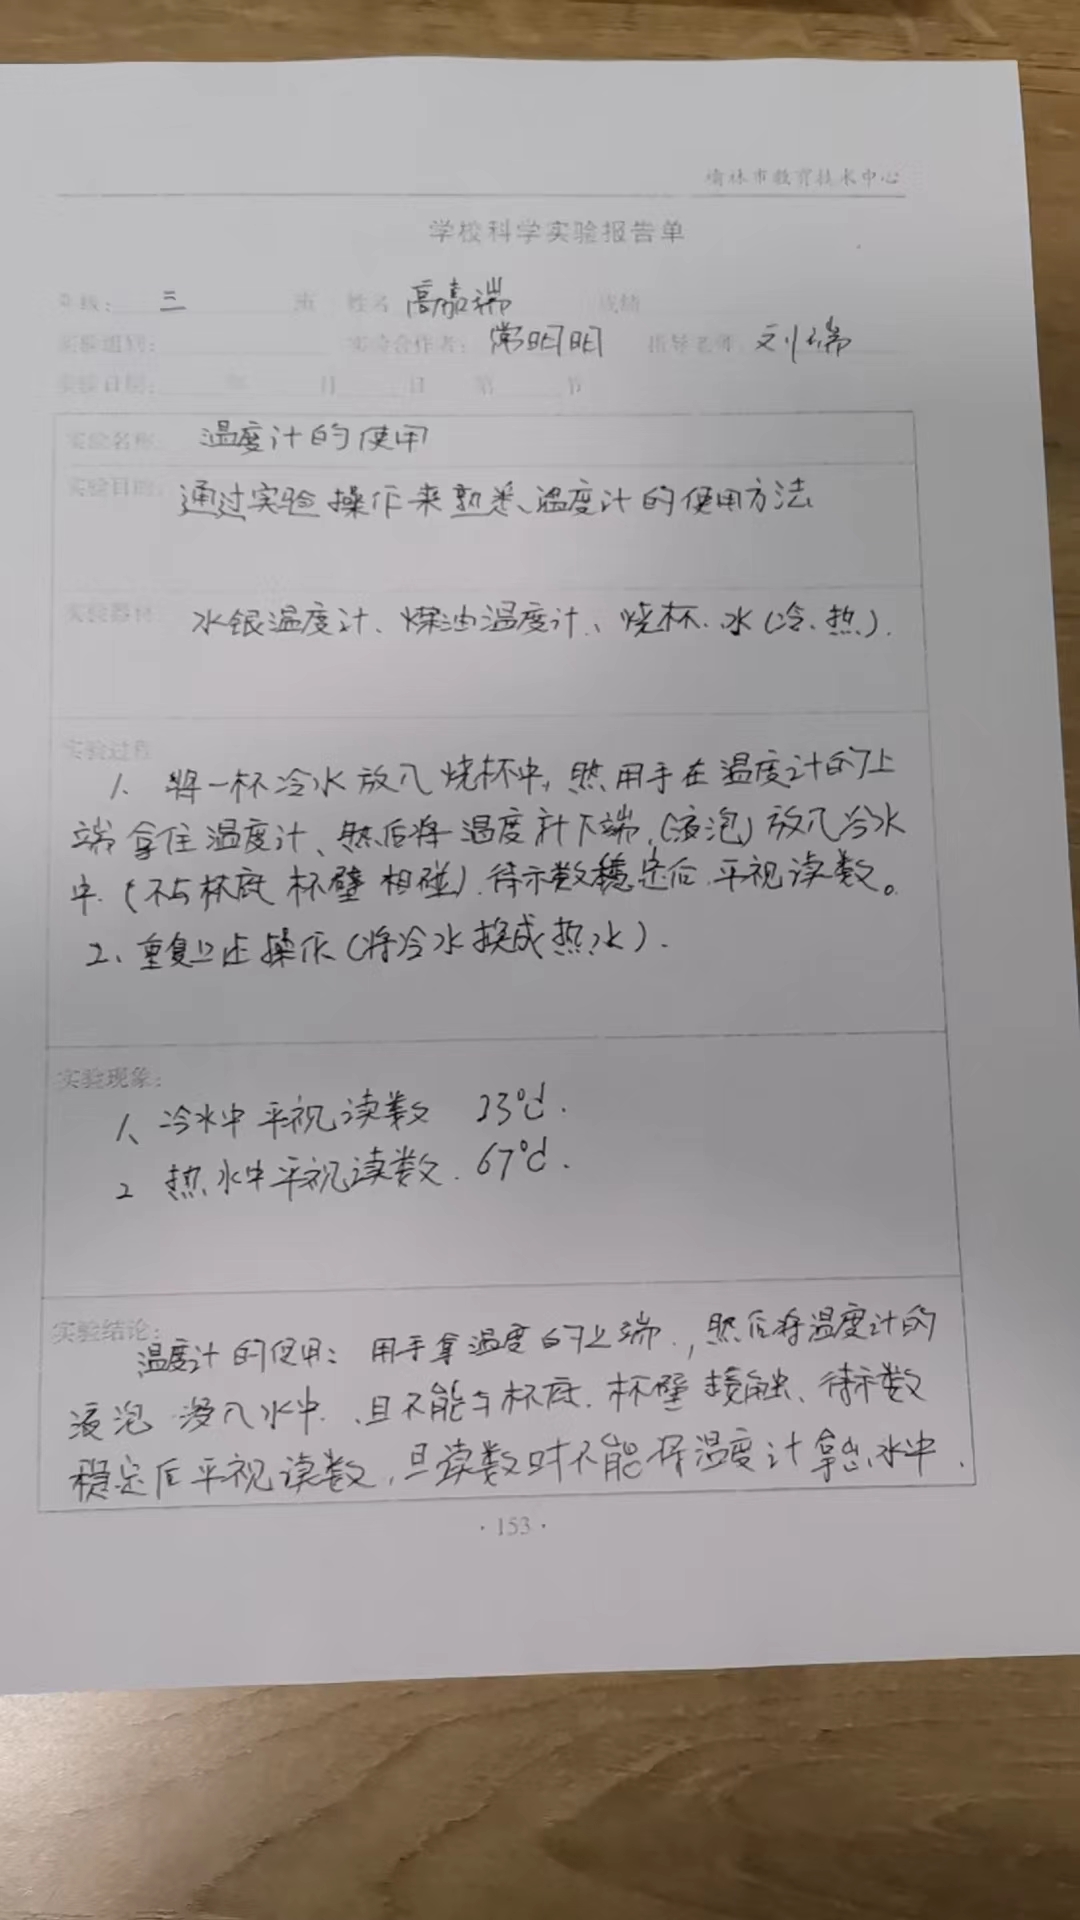 榆林市教育技术中心
学校科学实验报告单
年级: 三 班 姓名 高嘉瑞 成绩
实验组别: 实验合作者: 常明明 指导老师 刘瑞
实验日期: 年 月 日 第 节
实验名称: 温度计的使用
实验目的: 通过实验操作来熟悉、温度计的使用方法
实验器材 水银温度计、煤油温度计、烧杯、水(冷、热).
实验过程
1、将一杯冷水放入烧杯中, 然用手在温度计的上
端拿住温度计、然后将温度计下端,(液泡)放入冷水
中.(不与杯底杯壁相碰).待示数稳定后.平视读数。
2、重复上述操作(将冷水换成热水).
实验现象:
1、冷水中平视读数 23℃.
2 热水中平视读数. 67℃.
实验结论:
温度计的使用: 用手拿温度的上端., 然后将温度计的
液泡 浸入水中、且不能与杯底.杯壁接触、待示数
稳定后平视读数,且读数时不能将温度计拿出水中.
·153·